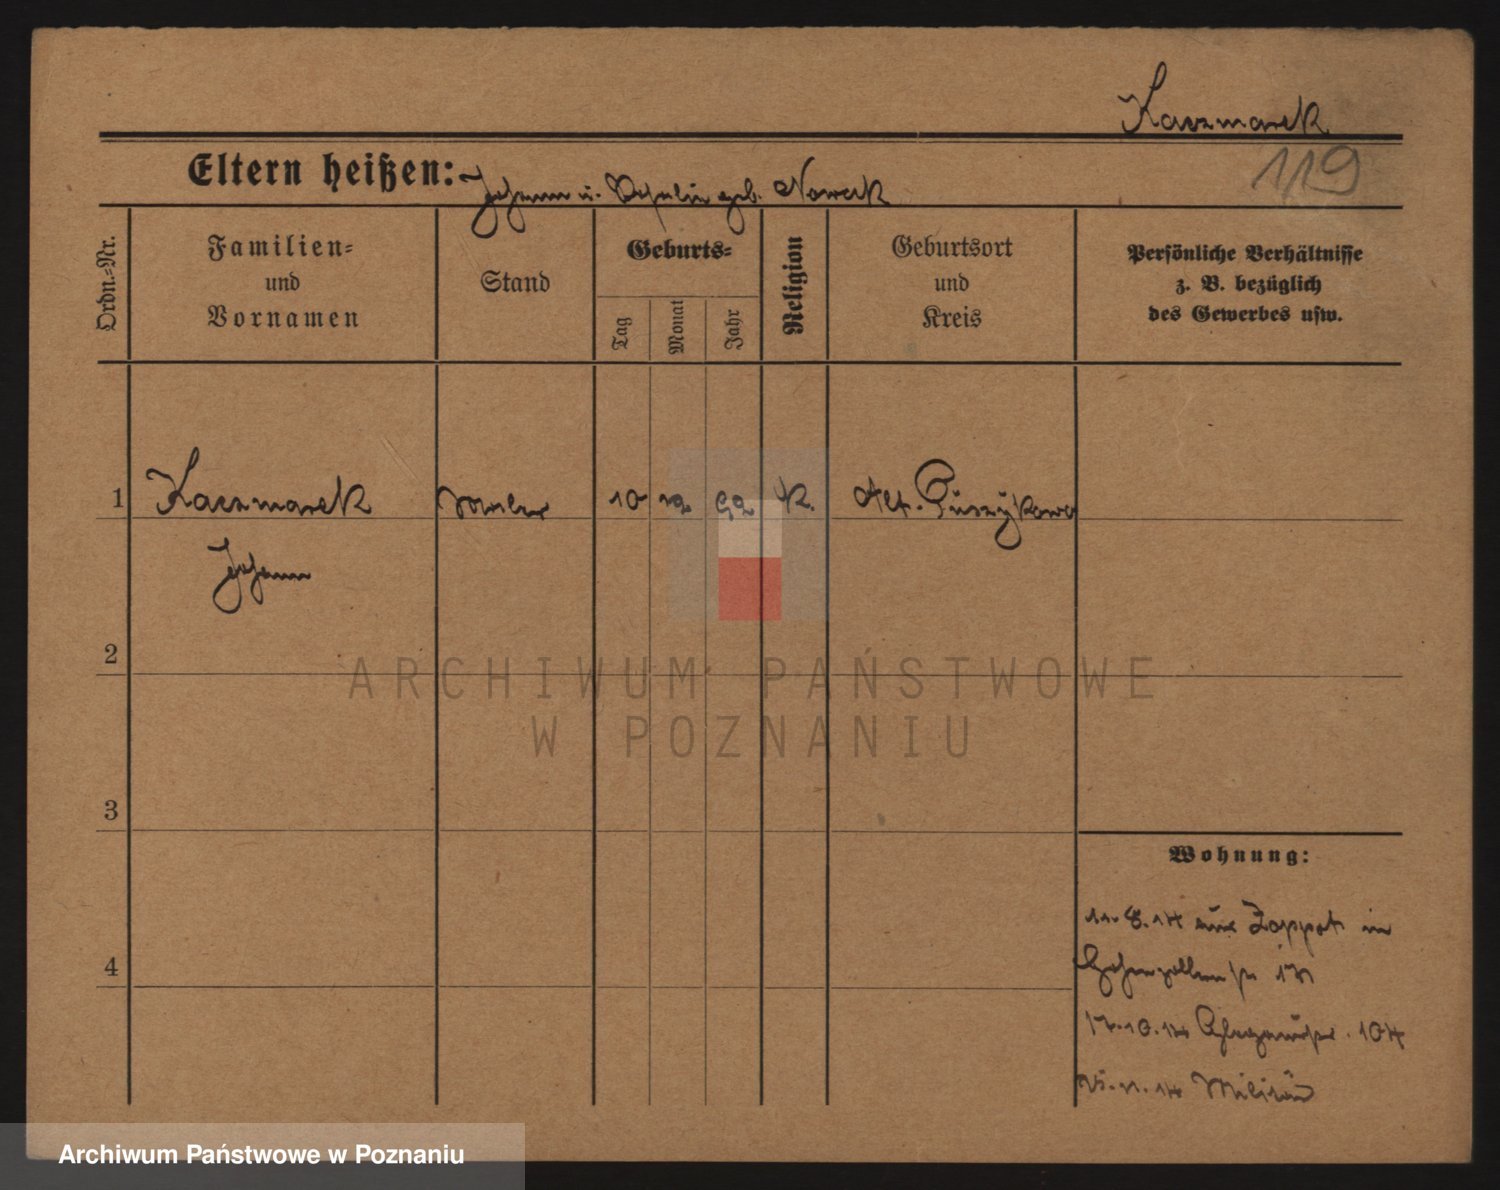 Kaczmarek
119
Eltern heißen: Johann u. geb. Nowack
Ordn.-Nr.
Familien-
und
Vornamen
Stand
Geburts-
Tag
Monat
Jahr
Religion
Geburtsort
und
Kreis
Persönliche Verhältnisse
z. B. bezüglich
des Gewerbes usw.
1 Kaczmarek Maler 10 12 92 K. Alt. Puszykowo
Johann
2
3
4
ARCHIWUM PAŃSTWOWE
W POZNANIU
Wohnung:
11.8.14 aus Zoppot in
Hohenzollernstr
17.10.14 104
11.14 Militär
Archiwum Państwowe w Poznaniu